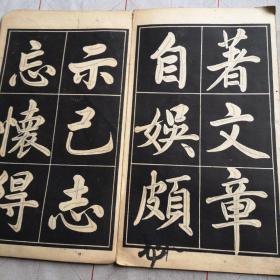 著文章
自娛頗
示己志
忘懷得